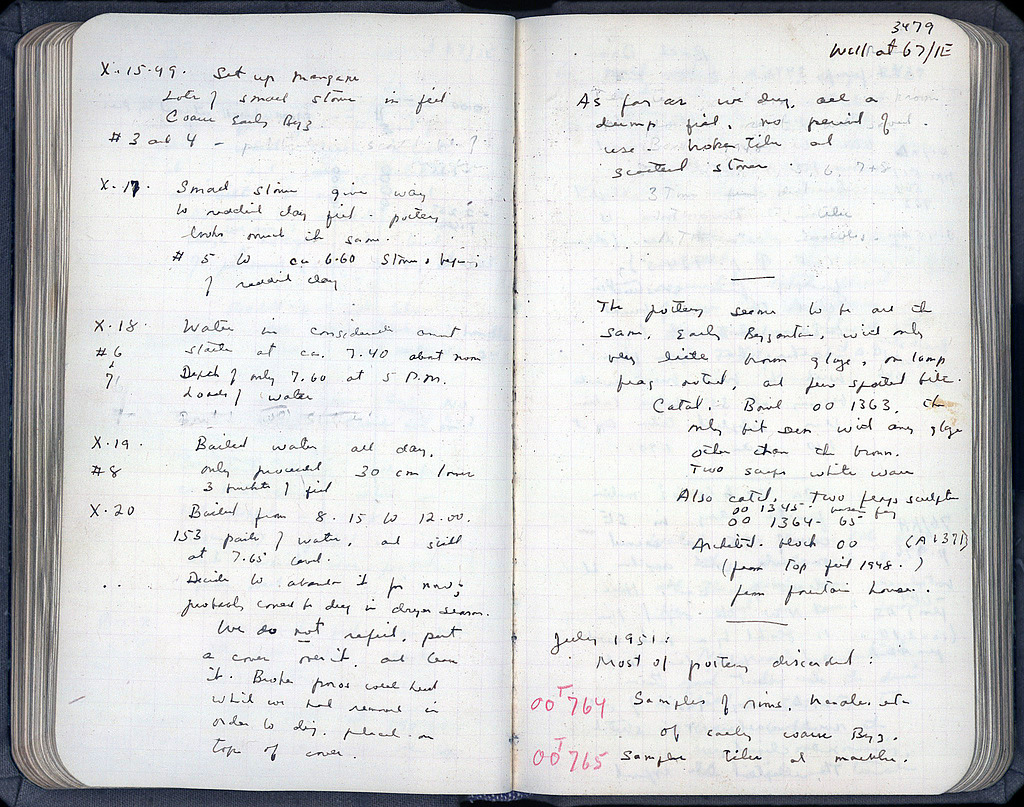 X.15.49. Set up mangane
Lots of small stones in fill
Coarse Early Byz.
#3 and 4 -
X.17. Small stones give way
to reddish clay fill. pottery
looks much the same.
#5 to ca 6.60 stones, begin.
of reddish clay
X.18. Water in considerable amt
#6 starts at ca. 7.40 about noon
7 Depth of only 7.60 at 5 P.M.
Loads of water
X.19. Bailed water all day.
#8 only proceeded 30 cm lower
3 buckets of fill
X.20 Bailed from 8.15 to 12.00.
153 pails of water, and still
at 7.65
Decide to abandon it for now;
probably come to dig in dryer season.
We do not refill, put
a cover over it, and leave
it. Broken poros well head
which we had removed in
order to dig, placed on
top of cover.
3479
Well at 67/IE
As far as we dug, all a
dump fill, no period of
use. broken tile and
scattered stones.
The pottery seems to be all the
same. Early Byzantine, with only
very little brown glaze, one lamp
frag noted, and few spouted tile.
Catal. Bowl 00 1363, the
only bit seen with any glaze
other than the brown.
Two scraps white ware
Also catal. two frags sculpture
00 1345-
00 1364- 65
Architect. block 00 (A 1371)
(from top fill 1948.)
from fountain house.
July 1951:
Most of pottery discarded:
00 T 764 Samples of rims, handles, etc.
of early coarse Byz.
00 T 765 Sample tiles and marble.